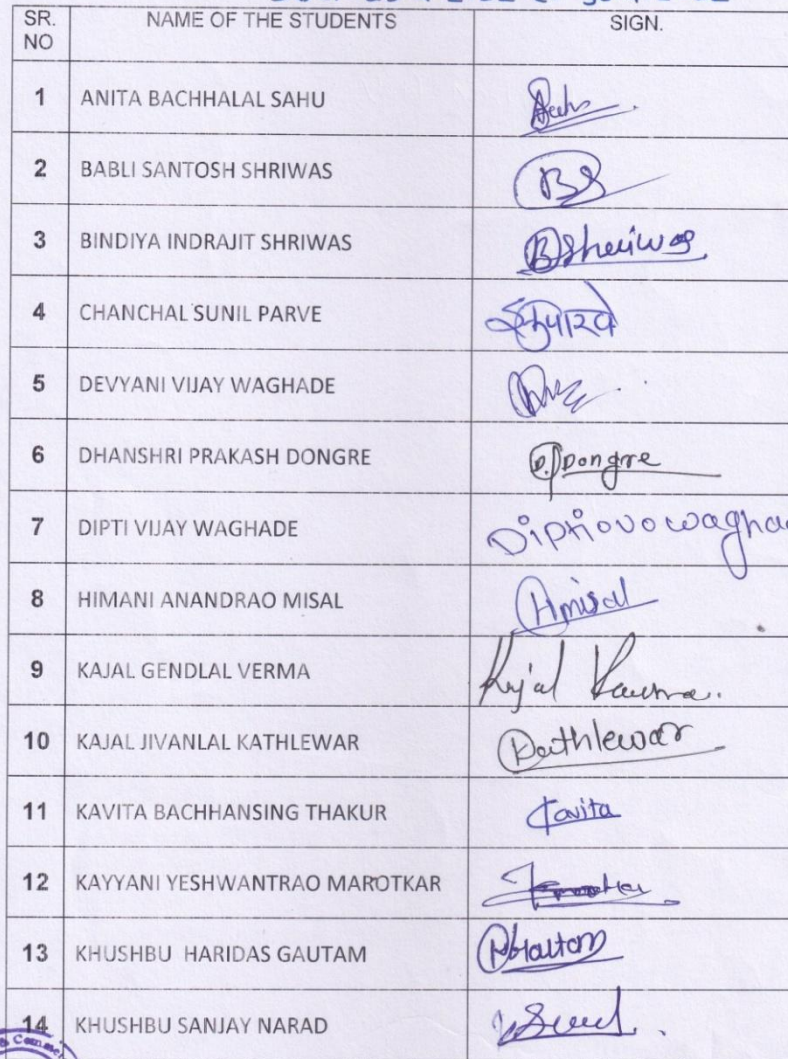 SR. NO NAME OF THE STUDENTS SIGN.
1 ANITA BACHHALAL SAHU Sahu
2 BABLI SANTOSH SHRIWAS BS
3 BINDIYA INDRAJIT SHRIWAS BShriwas
4 CHANCHAL SUNIL PARVE
5 DEVYANI VIJAY WAGHADE
6 DHANSHRI PRAKASH DONGRE D.Dongre
7 DIPTI VIJAY WAGHADE
8 HIMANI ANANDRAO MISAL HMisal
9 KAJAL GENDLAL VERMA Kajal Verma.
10 KAJAL JIVANLAL KATHLEWAR Kathlewar
11 KAVITA BACHHANSING THAKUR Kavita
12 KAYYANI YESHWANTRAO MAROTKAR
13 KHUSHBU HARIDAS GAUTAM
14 KHUSHBU SANJAY NARAD